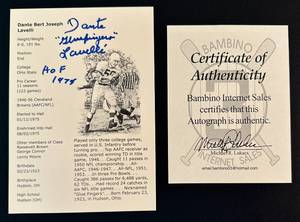 Dante Bert Joseph
Lavelli
Dante
"Gluefingers"
Lavelli
HOF
1975
Height/Weight
6-0, 191 lbs
Position
End
College
Ohio State
Pro Career
11 seasons
(123 games)
1946-56 Cleveland
Browns (AAFC/NFL)
Elected to Hall
01/12/1975
Enshrined into Hall
08/02/1975
Other Members of Class
Roosevelt Brown
George Connor
Lenny Moore
Birthdate
02/23/1923
Birthplace
Hudson, OH
High School
Hudson (OH)
Played only three college games,
served in U.S. Infantry before
turning pro... Top AAFC receiver as
rookie, scored winning TD in title
game, 1946... Caught 11 passes in
1950 NFL championship... All-AAFC
1946, 1947... All-NFL 1951,
1953... In three Pro Bowls...
Caught 386 passes for 6,488 yards,
62 TDs... Had record 24 catches in
six NFL title games... Nicknamed
"Glue Fingers". Born February 23,
1923, in Hudson, Ohio.
Certificate of
Authenticity
Bambino Internet Sales
certifies that this
Autograph is authentic.
Michael R. Lukacs
email:bambino03@hotmail.com
BAMBINO
INTERNET SALES